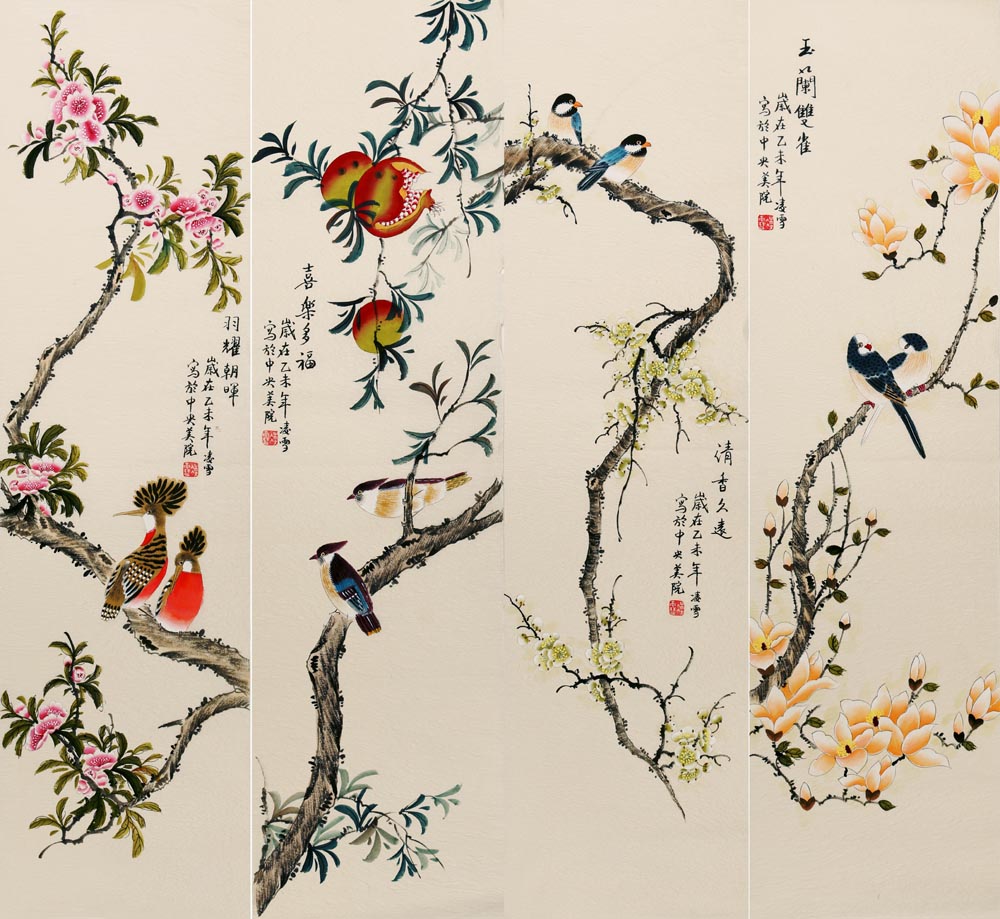 羽耀朝暉
歲在乙未年凌雪
寫於中央美院
喜樂多福
歲在乙未年凌雪
寫於中央美院
清香久遠
歲在乙未年凌雪
寫於中央美院
玉蘭雙雀
歲在乙未年凌雪
寫於中央美院